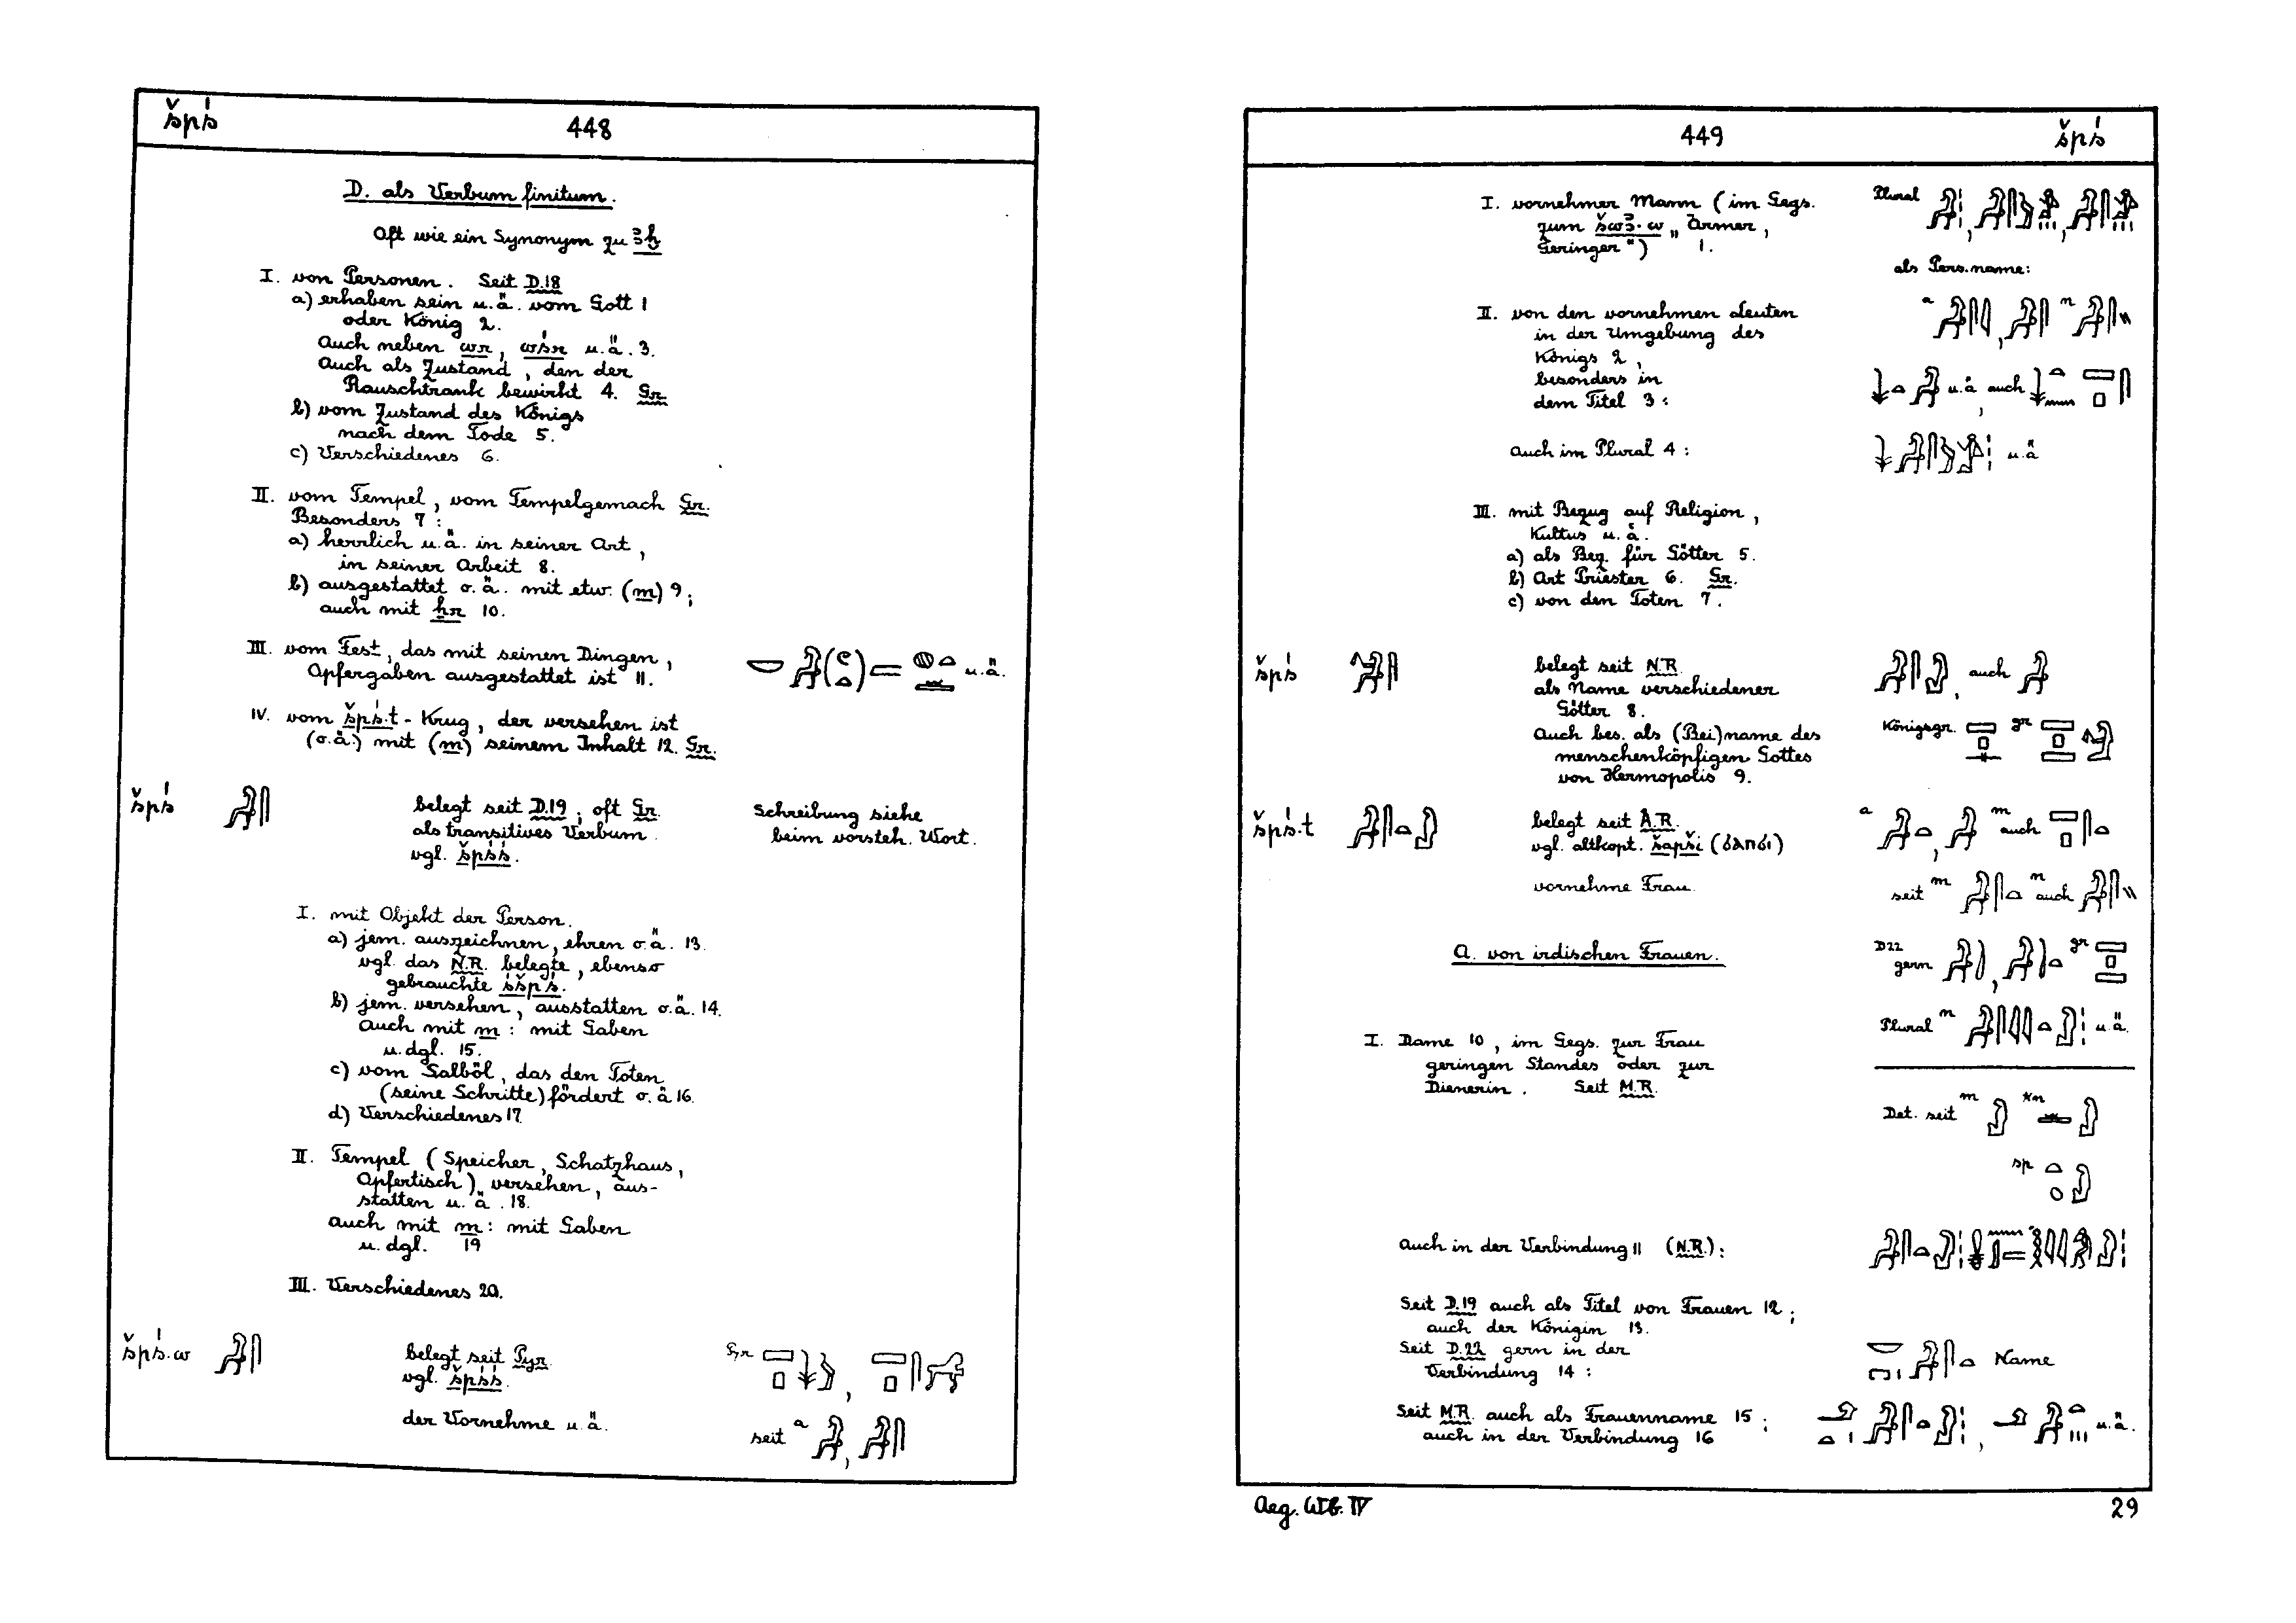 špś́
448
D. als Verbum finitum.
Oft wie ein Synonym zu ꜣḫ
I. von Personen. Seit D.18
a) erhaben sein u.ä. vom Gott 1
oder König 2.
Auch neben wr, wśr u.ä. 3.
Auch als Zustand, den der
Rauschtrank bewirkt 4. Gr.
b) vom Zustand des Königs
nach dem Tode 5.
c) Verschiedenes 6.
II. vom Tempel, vom Tempelgemach Gr.
Besonders 7:
a) herrlich u.ä. in seiner Art,
in seiner Arbeit 8.
b) ausgestattet o.ä. mit etw. (m) 9;
auch mit ẖr 10.
III. vom Fest, das mit seinen Dingen,
Opfergaben ausgestattet ist 11. u.ä.
IV. vom špś.t-Krug, der versehen ist
(o.ä.) mit (m) seinem Inhalt 12. Gr.
špś belegt seit D.19; oft Gr. Schreibung siehe
als transitives Verbum. beim vorsteh. Wort.
vgl. špśś.
I. mit Objekt der Person.
a) jem. auszeichnen, ehren o.ä. 13.
vgl. das N.R. belegte, ebenso
gebrauchte śšpś.
b) jem. versehen, ausstatten o.ä. 14.
Auch mit m: mit Gaben
u.dgl. 15.
c) vom Salböl, das den Toten
(seine Schritte) fördert o.ä 16.
d) Verschiedenes 17.
II. Tempel (Speicher, Schatzhaus,
Opfertisch) versehen, aus-
statten u.ä. 18.
auch mit m: mit Gaben
u.dgl. 19
III. Verschiedenes 20.
špś.w belegt seit Pyr. Pyr
vgl. špśś.
der Vornehme u.ä. seit a
449
špś
I. vornehmer Mann (im Gegs. Plural
zum šwꜣ.w „Armer,
Geringer") 1.
als Pers.name:
II. von den vornehmen Leuten a n
in der Umgebung des
Königs 2,
besonders in u.ä auch
dem Titel 3:
Auch im Plural 4: u.ä
III. mit Bezug auf Religion,
Kultus u.ä.
a) als Bez. für Götter 5.
b) Art Priester 6. Gr.
c) von den Toten 7.
špś belegt seit N.R. auch
als Name verschiedener
Götter 8. Königsgr. gr
Auch bes. als (Bei)name des
menschenköpfigen Gottes
von Hermopolis 9.
špś.t belegt seit A.R. a m auch
vgl. altkopt. šapši
vornehme Frau. seit m n auch
A. von irdischen Frauen. D22 gern gr
Plural n u.ä.
I. Dame 10, im Gegs. zur Frau
geringen Standes oder zur
Dienerin. Seit M.R.
Det. seit m
sp
Auch in der Verbindung 11 (N.R.):
Seit D.19 auch als Titel von Frauen 12;
auch der Königin 13.
Seit D.22 gern in der
Verbindung 14: Name
Seit M.R. auch als Frauenname 15;
auch in der Verbindung 16 u.ä.
Aeg. Wb. IV
29